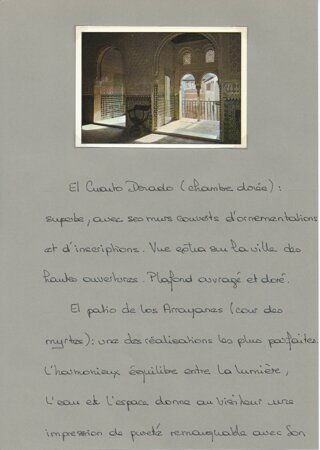 El Cuarto Dorado (chambre dorée) :
superbe, avec ses murs couverts d'ornementations
et d'inscriptions. Vue sur la ville des
hautes ouvertures. Plafond ouvragé et doré.
El patio de los Arrayanes (cour des
myrtes) : une des réalisations les plus parfaites.
L'harmonieux équilibre entre la lumière,
l'eau et l'espace donne au visiteur une
impression de pureté remarquable avec son